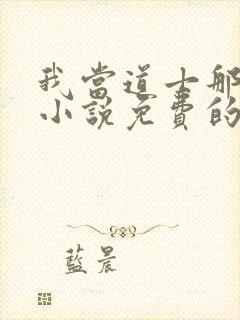 我當道士那
小說免費的
藍晨